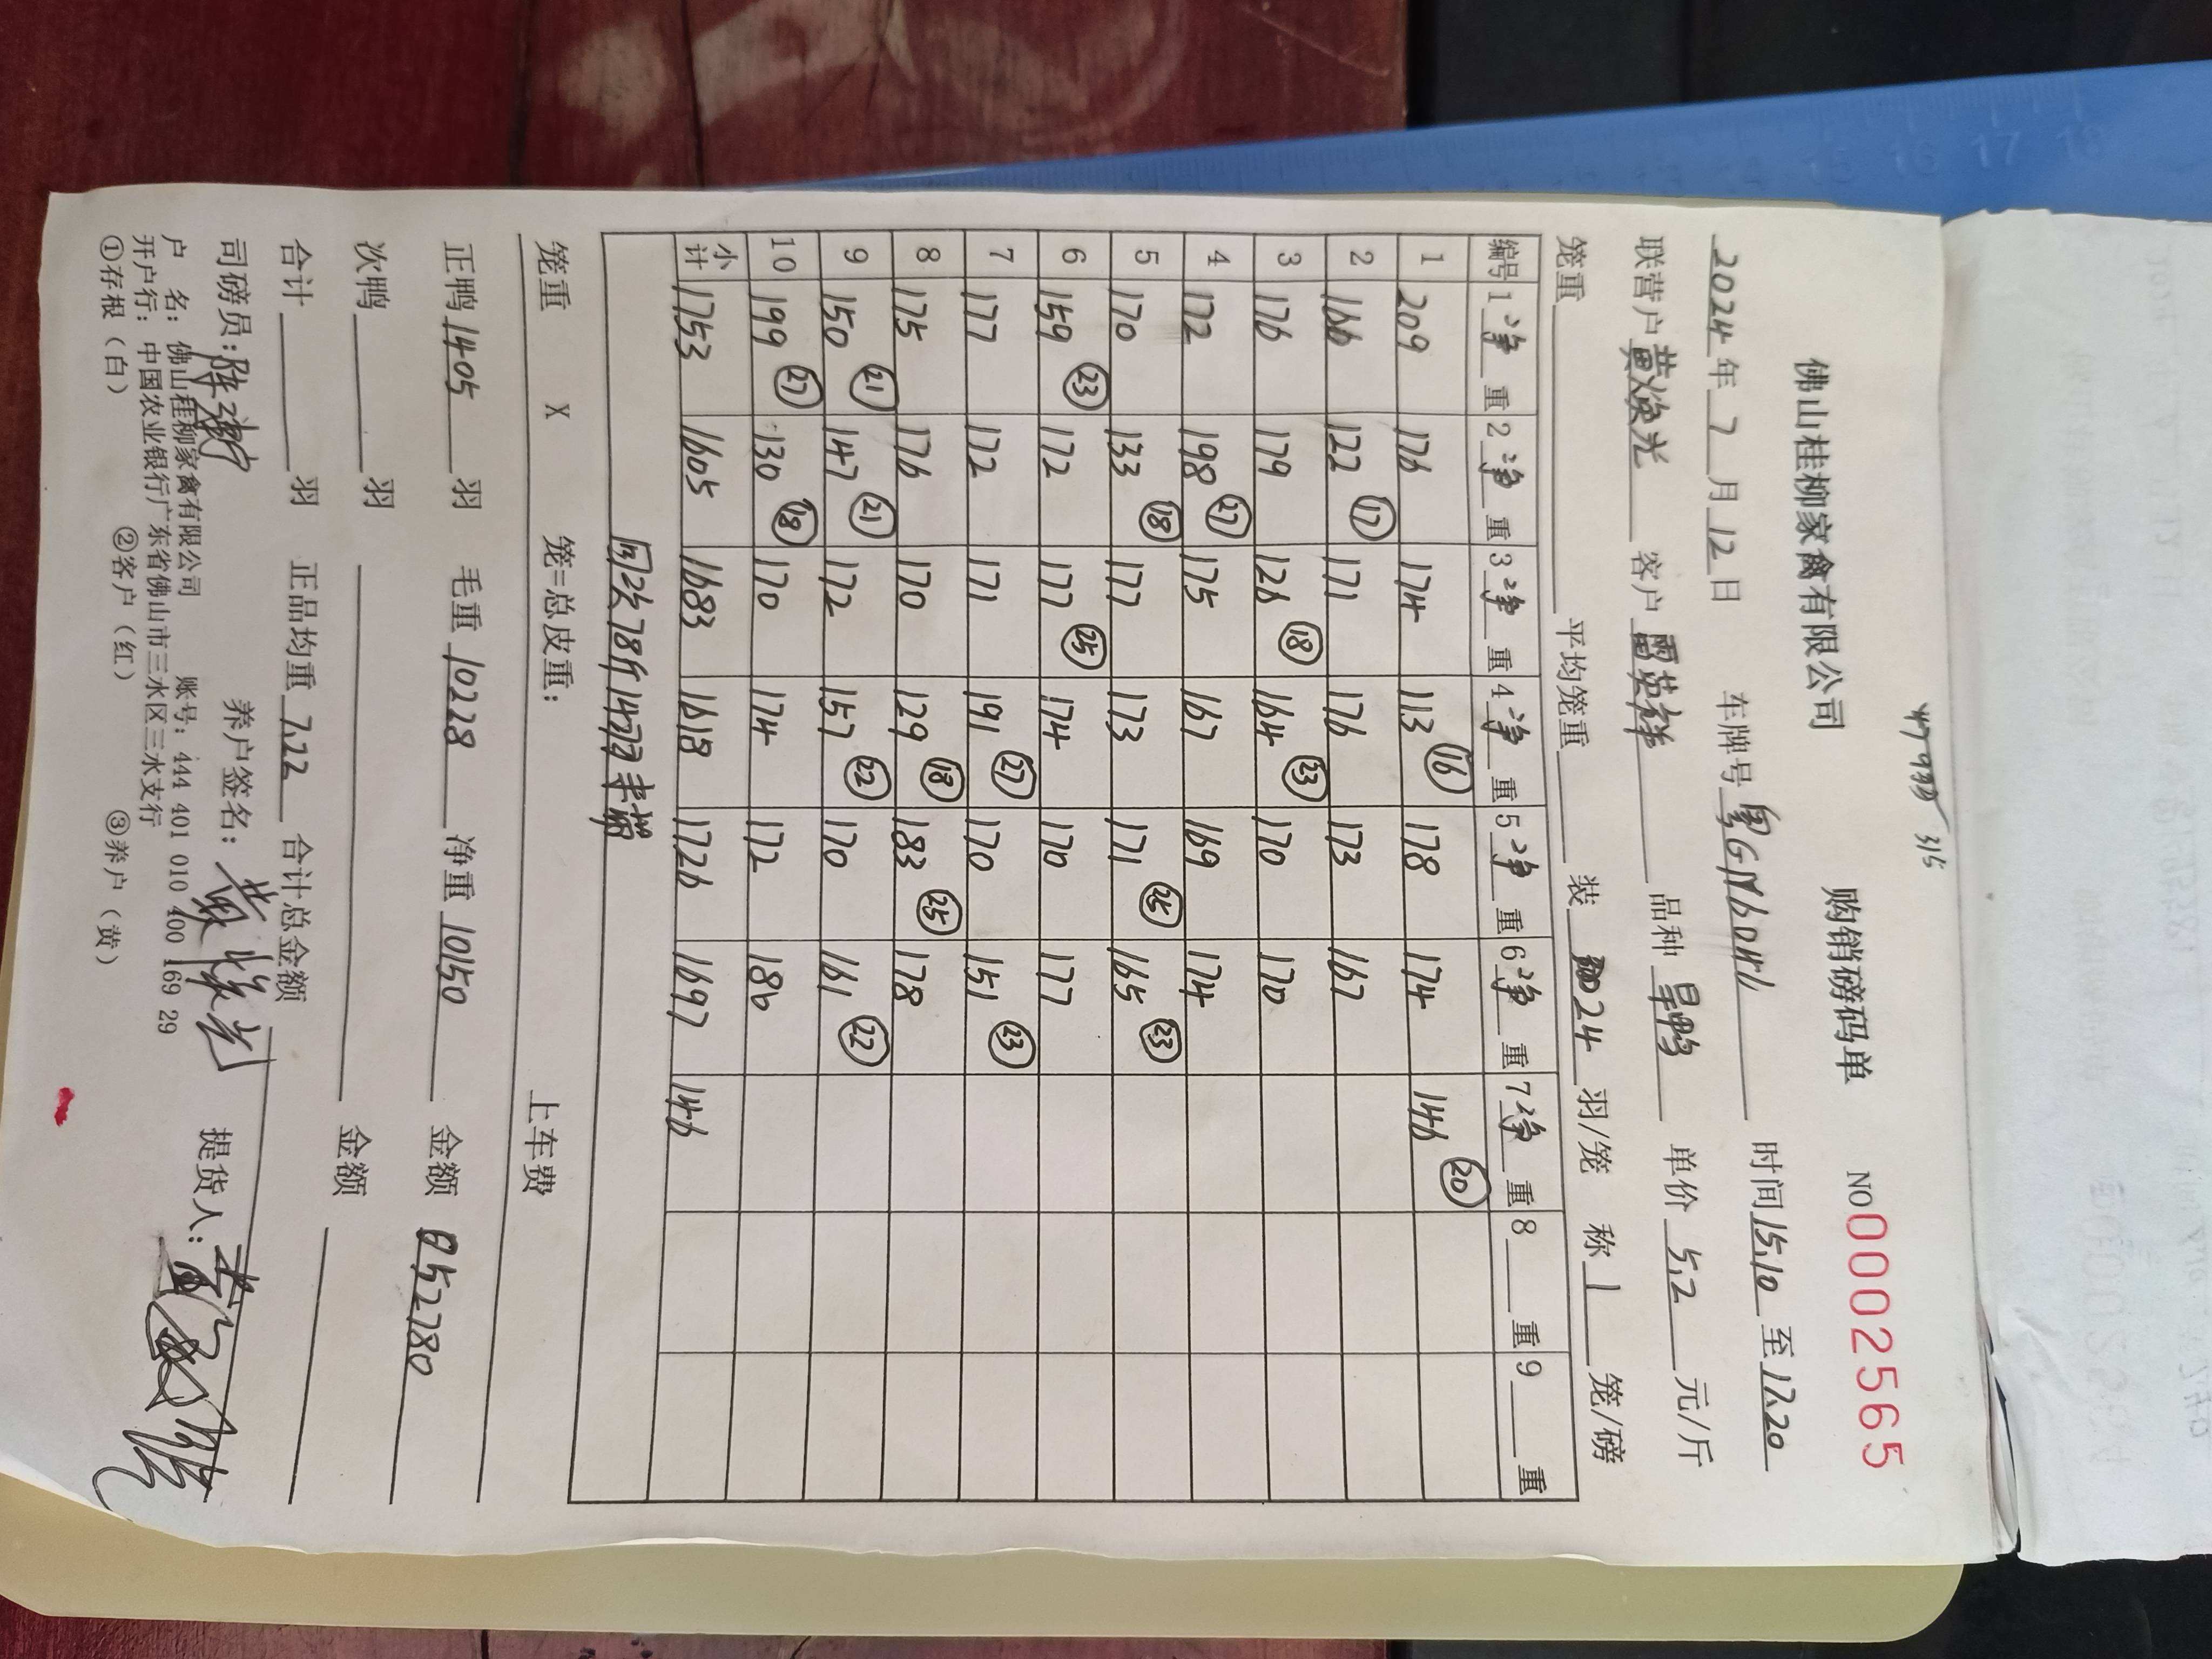 47933 315
佛山桂柳家禽有限公司 购销磅码单 NO 0002565
2024年7月12日 车牌号粤G 时间15.10至17.20
联营户黄焕光 客户 品种旱鸭 单价5.2元/斤
笼重 平均笼重 装24羽/笼 称1笼/磅
编号 1净重 2净重 3净重 4净重 5净重 6净重 7净重 8重 9重
1 209 176 174 113⑯ 178 174 146⑳
2 166 122⑰ 171 176 173 167
3 176 179 126⑱ 164㉓ 170 170
4 172 198㉗ 175 167 169 174
5 170 133⑱ 177 173 171㉕ 165㉓
6 159㉓ 172 177㉕ 174 170 177
7 177 172 171 191㉗ 170 151㉓
8 175 176 170 129⑱ 183㉕ 178
9 150㉑ 147㉑ 172 157㉒ 170 161㉒
10 199㉗ 130⑱ 170 174 172 186
小计 1753 1605 1683 1618 1726 1697 146
78斤
笼重 X 笼=总皮重: 上车费
正鸭1405羽 毛重10228 净重10150 金额52780
次鸭 羽 金额
合计 羽 正品均重7.22 合计总金额
司磅员: 养户签名:黄焕光 提货人:
户 名: 佛山桂柳家禽有限公司 账号: 444 401 010 400 169 29
开户行: 中国农业银行广东省佛山市三水区三水支行
①存根(白) ②客户(红) ③养户(黄)
16 17 18